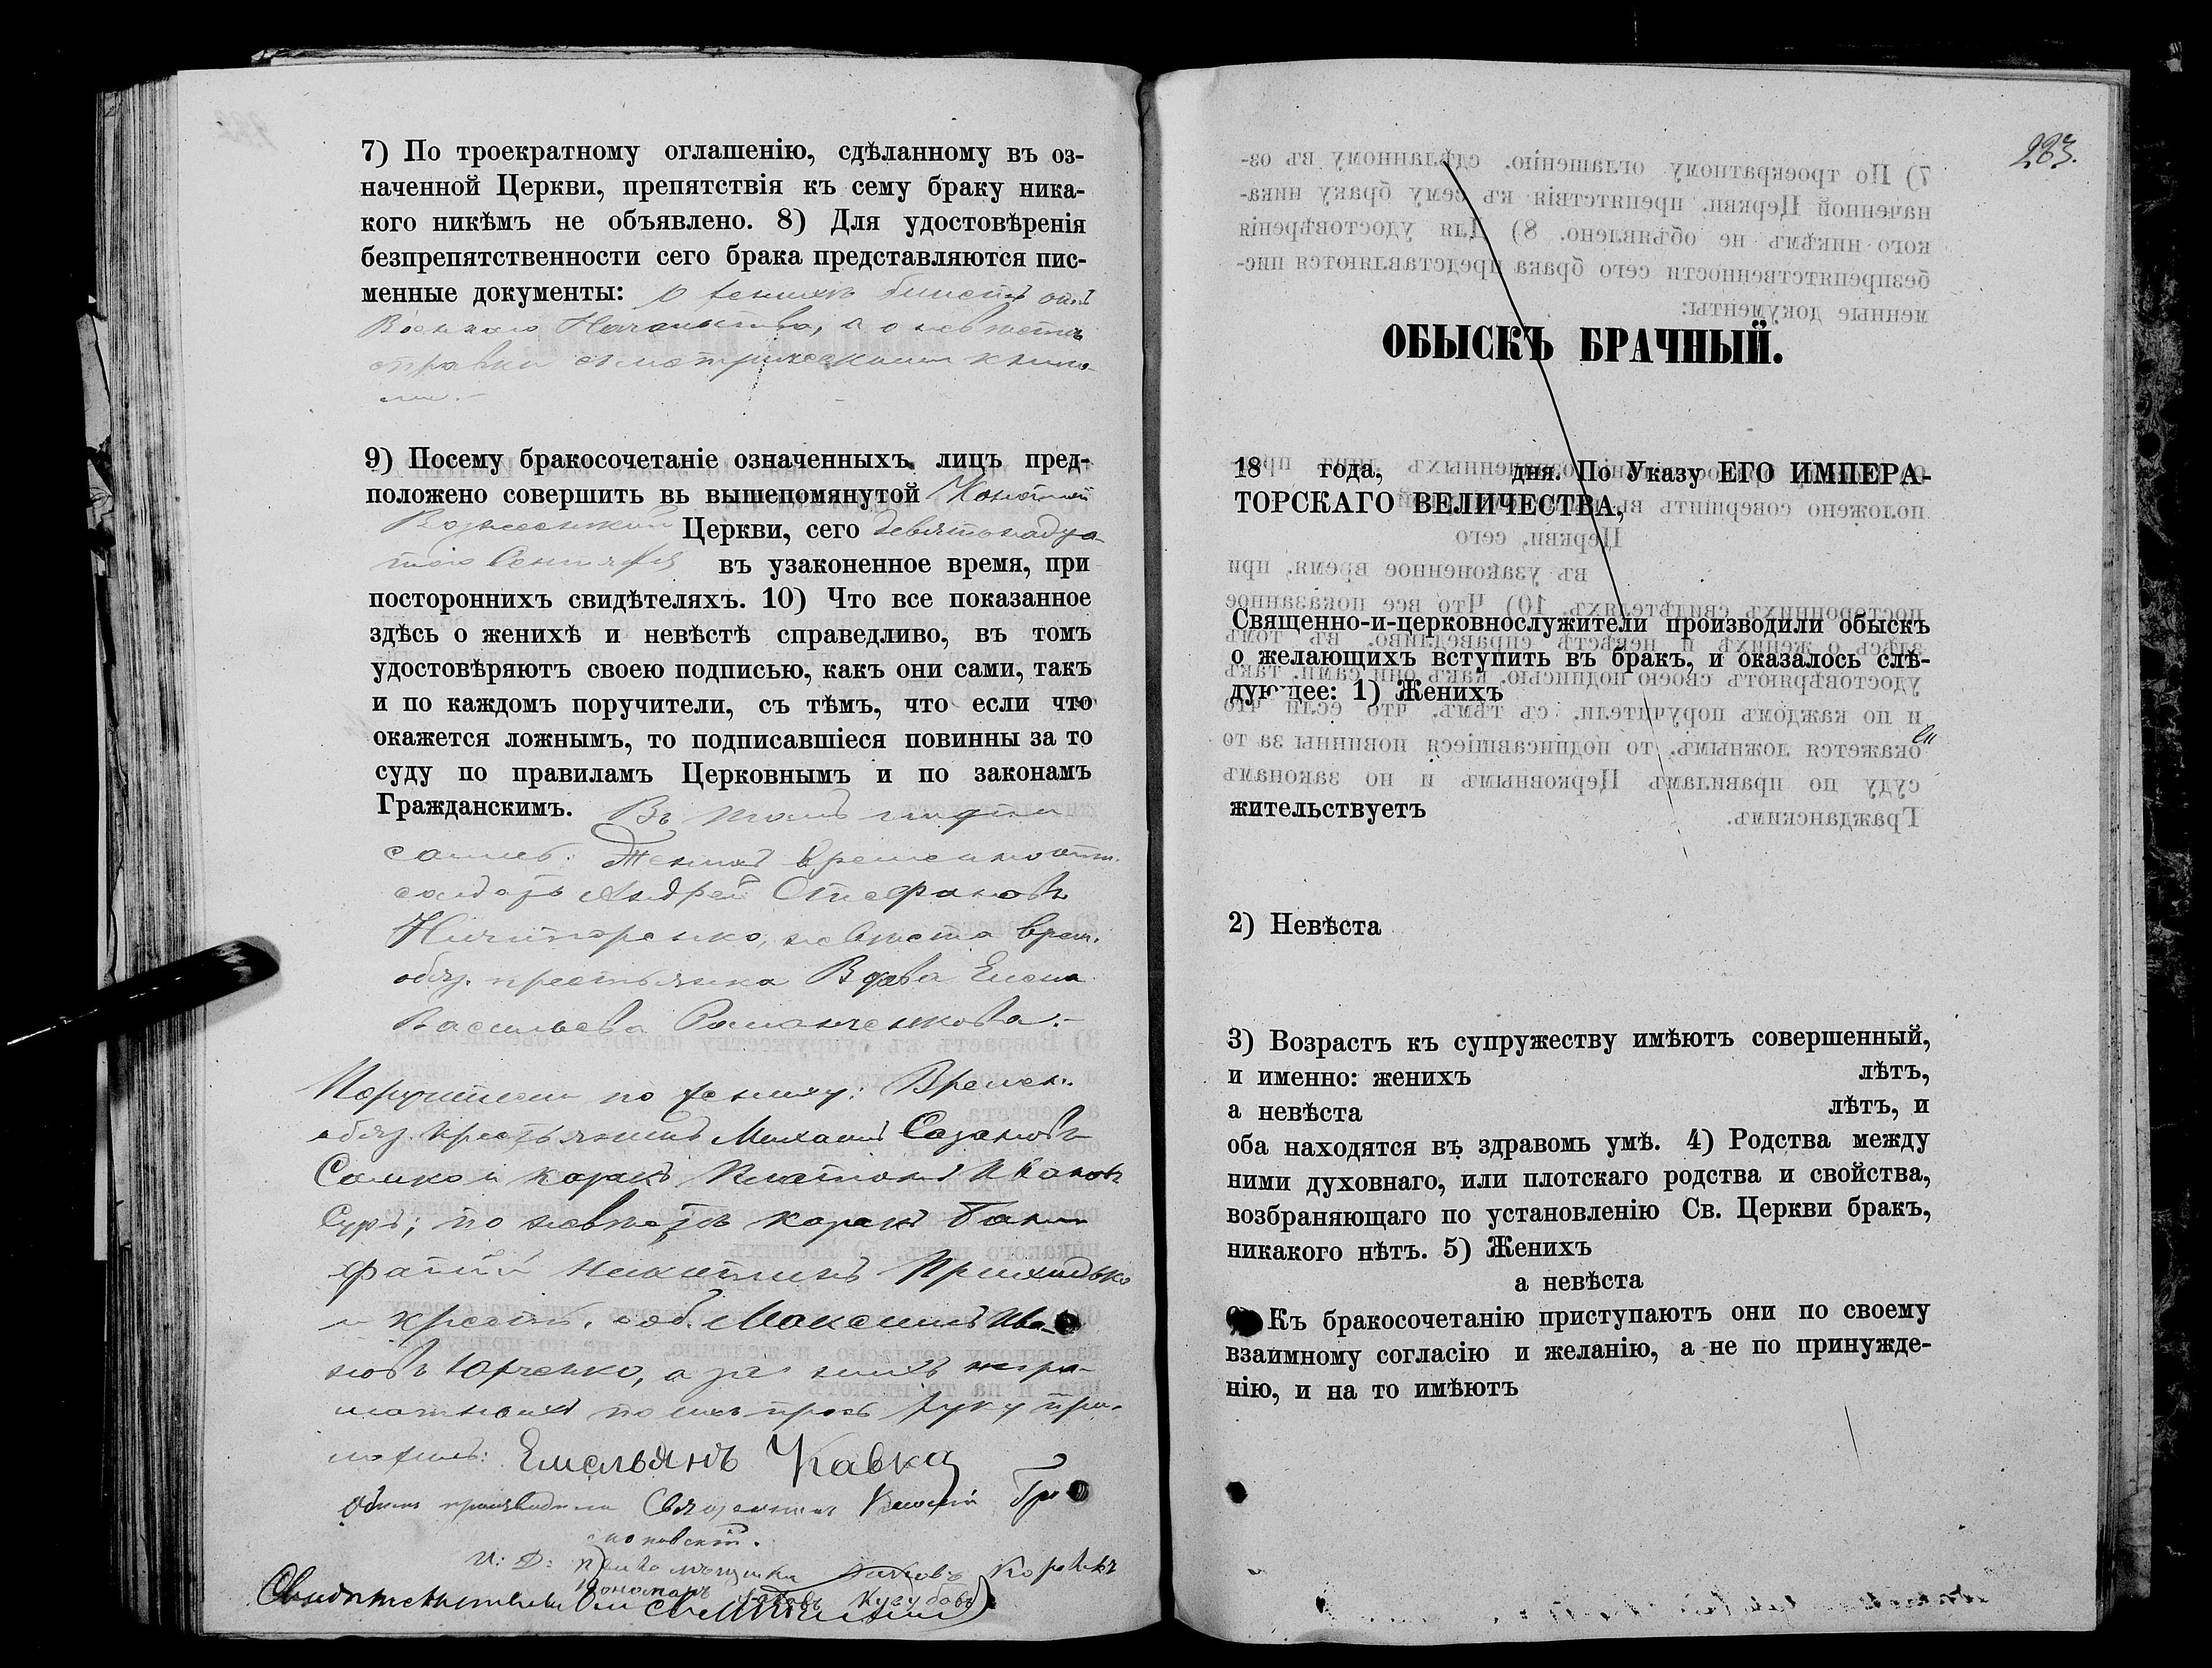 7) По троекратному оглашенію, сдѣланному въ оз-
наченной Церкви, препятствія къ сему браку ника-
кого никѣмъ не объявлено. 8) Для удостовѣренія
безпрепятственности сего брака представляются пис-
менные документы: о женихѣ билетъ отъ
Военнаго Начальства, а о невѣстѣ
справки съ метрическими книга-
ми.-
9) Посему бракосочетаніе означенныхъ лицъ пред-
положено совершить вь вышепомянутой
Вознесенской Церкви, сего девятнадца-
таго Сентября въ узаконенное время, при
постороннихъ свидѣтеляхъ. 10) Что все показанное
здѣсь о женихѣ и невѣстѣ справедливо, въ томъ
удостовѣряютъ своею подписью, какъ они сами, такъ
и по каждомъ поручители, съ тѣмъ, что если что
окажется ложнымъ, то подписавшіеся повинны за то
суду по правиламъ Церковнымъ и по законамъ
Гражданскимъ. Въ томъ подпи
сались: Женихъ временноотп.
солдатъ Андрей Стефановъ
Ничипоренко, невѣста врем.
обяз. крестьянка Вдова Елена
Васильева Романченкова.-
Поручители по жениху: Времен.
обяз. крестьянинъ Михаилъ Сазановъ
Самко и козакъ Платонъ Ивановъ
Суръ; по невѣстѣ козакъ
Никитинъ Приходько
и крест. соб. Максимъ Ива-
новъ Юрченко, а за нихъ негра-
мотныхъ по ихъ прозь руку при-
ложилъ: Емельянъ Кавка
Обыскъ производили Священникъ
И: Д:
Пономарь Яковъ
283.
ОБЫСКЪ БРАЧНЫЙ.
18 года, дня. По Указу ЕГО ИМПЕРА-
ТОРСКАГО ВЕЛИЧЕСТВА,
Священно-и-церковнослужители производили обыскъ
о желающихъ вступить въ бракъ, и оказалось слѣ-
дующее: 1) Женихъ
жительствуетъ
2) Невѣста
3) Возрастъ къ супружеству имѣютъ совершенный,
и именно: женихъ лѣтъ,
а невѣста лѣтъ, и
оба находятся въ здравомь умѣ. 4) Родства между
ними духовнаго, или плотскаго родства и свойства,
возбраняющаго по установленію Св. Церкви бракъ,
никакого нѣтъ. 5) Женихъ
а невѣста
Къ бракосочетанію приступаютъ они по своему
взаимному согласію и желанію, а не по принужде-
нію, и на то имѣютъ